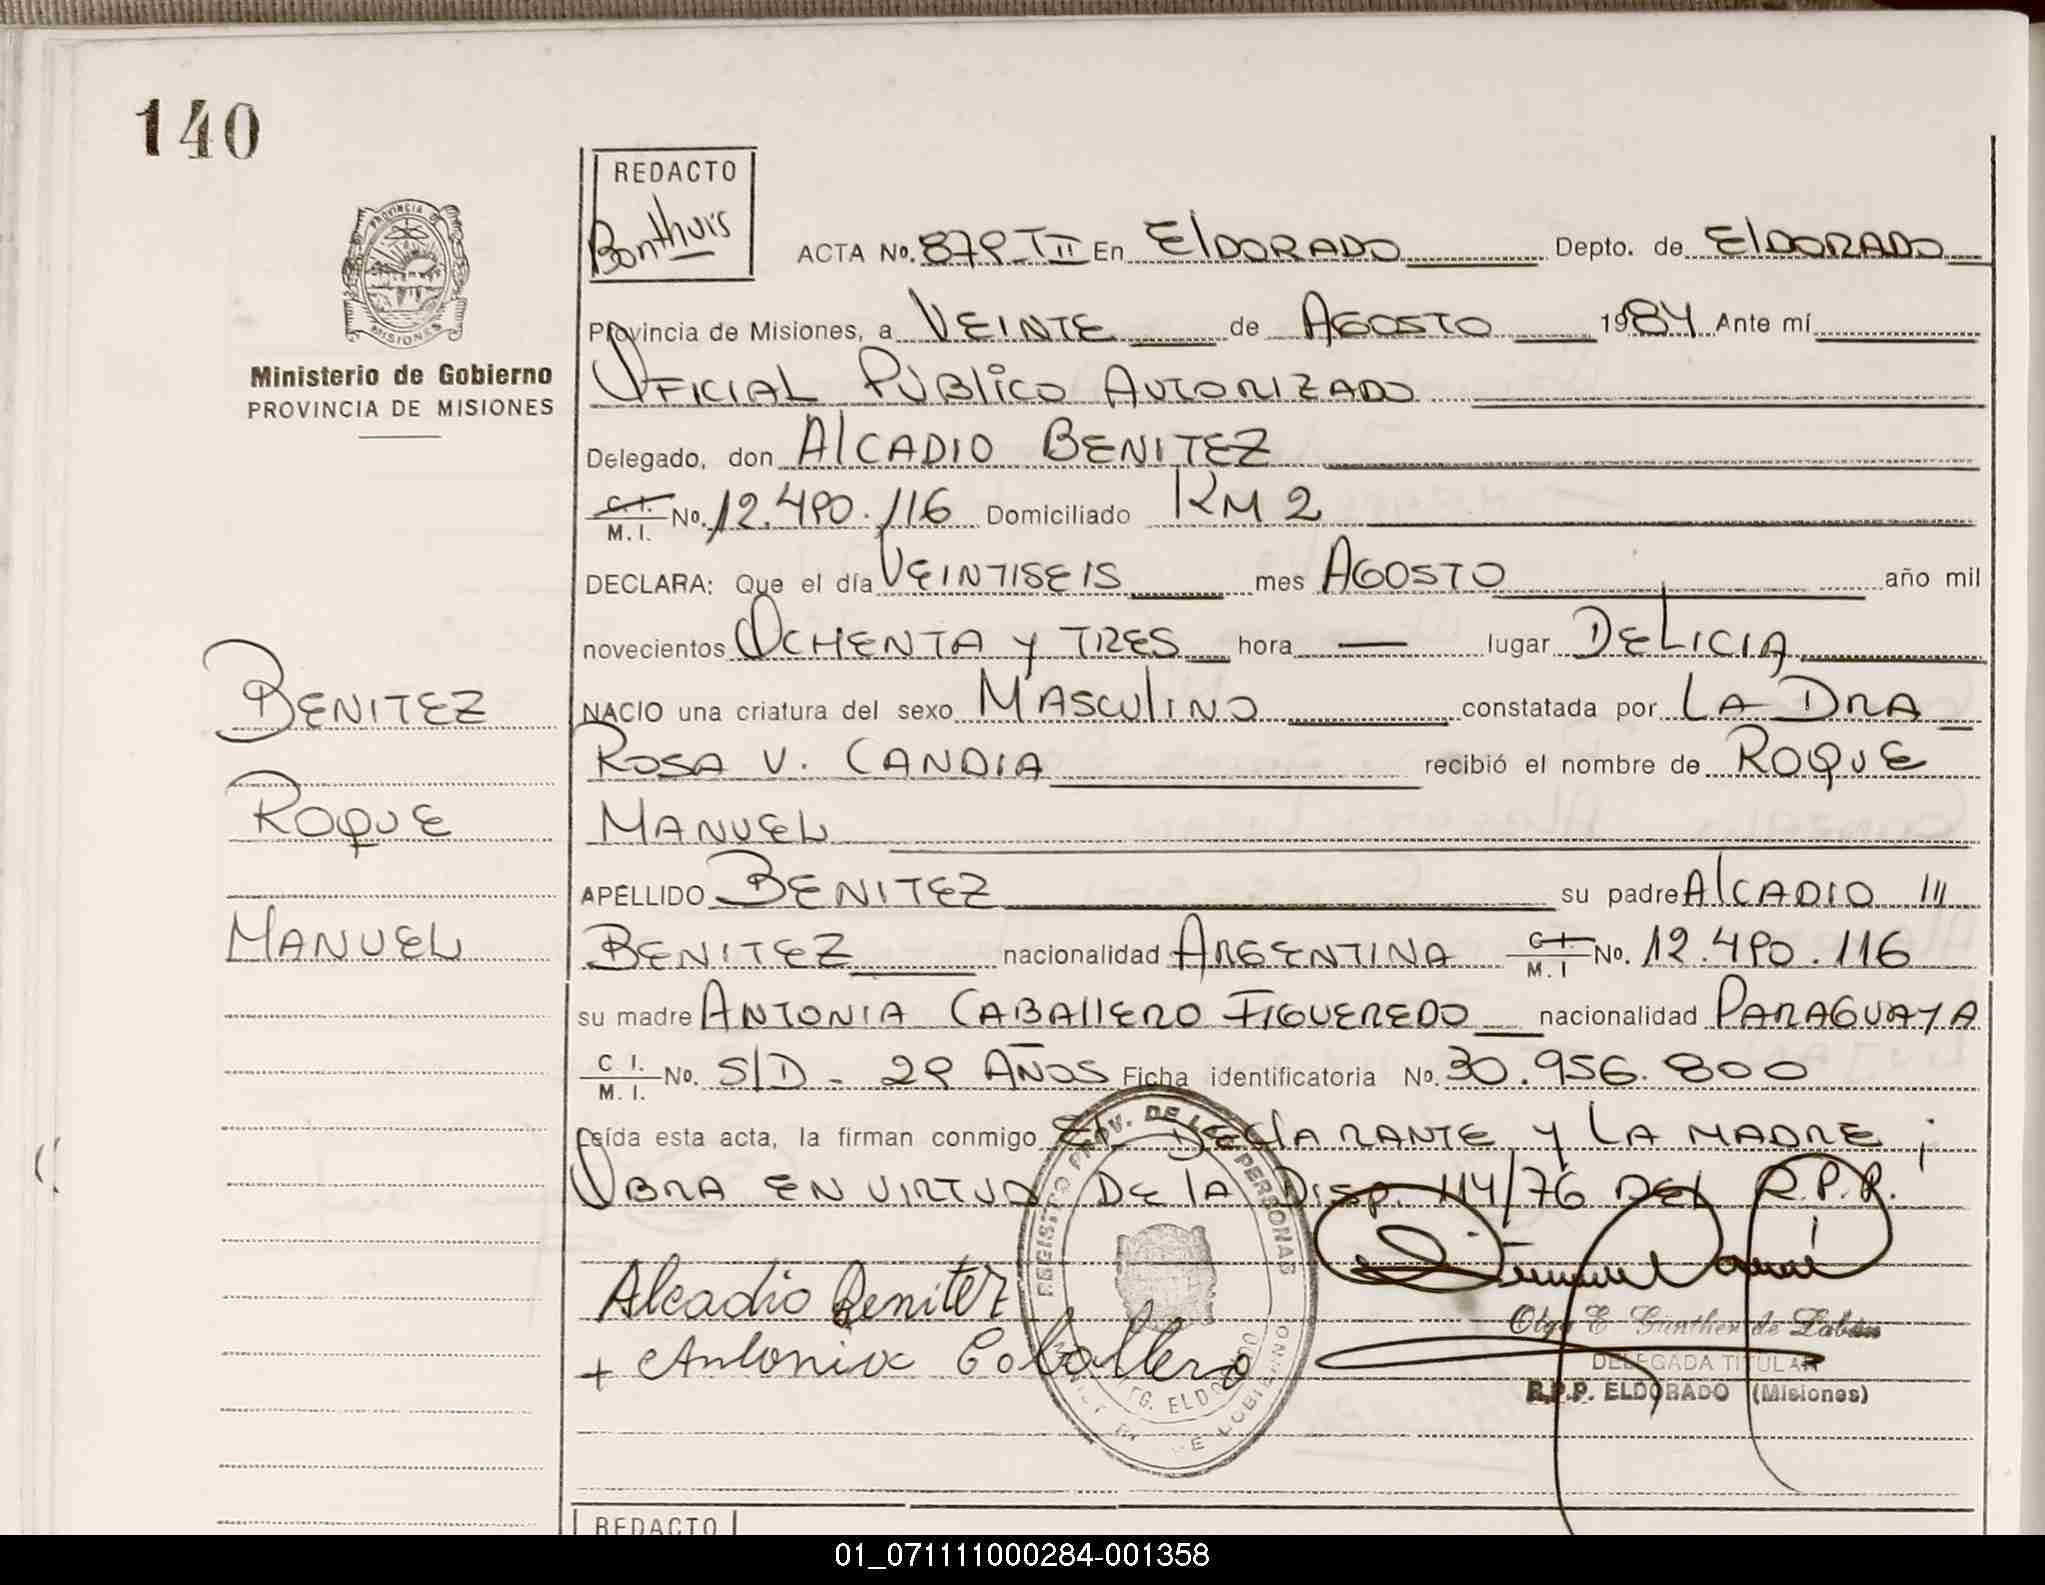 140
REDACTO
Bonthuis
PROVINCIA DE
MISIONES
Ministerio de Gobierno
PROVINCIA DE MISIONES
ACTA No. 879 TII En ElDORADO Depto. de ElDORADO
Provincia de Misiones, a VEINTE de AGOSTO 1984 Ante mí
OFICIAL PÚBLICO AUTORIZADO
Delegado, don AlCADIO BENITEZ
C. I. / M. I. No. 12.490.116 Domiciliado KM 2
DECLARA: Que el día VEINTISEIS mes AGOSTO año mil
novecientos OCHENTA Y TRES hora — lugar DELICIA
NACIO una criatura del sexo MASCULINO constatada por LA DRA
ROSA V. CANDIA recibió el nombre de ROQUE
MANUEL
APELLIDO BENITEZ su padre AlCADIO III
BENITEZ nacionalidad ARGENTINA C. I. / M. I No. 12.490.116
su madre ANTONIA CABAllERO FIGUEREDO nacionalidad PARAGUAYA
C I. / M. I. No. S/D - 29 AÑOS Ficha identificatoria No. 30.956.800
Leída esta acta, la firman conmigo EL DEClARANTE Y LA MADRE ;
OBRA EN VIRTUD DE lA DISP. 114/76 DEL R.P.P.
BENITEZ
ROQUE
MANUEL
Alcadio Benitez
+ Antonia Caballero
REGISTRO PROV. DE LAS PERSONAS
ELDORADO
Olga E. Günther de Labán
DELEGADA TITULAR
R.P.P. ELDORADO (Misiones)
REDACTO
01_071111000284-001358